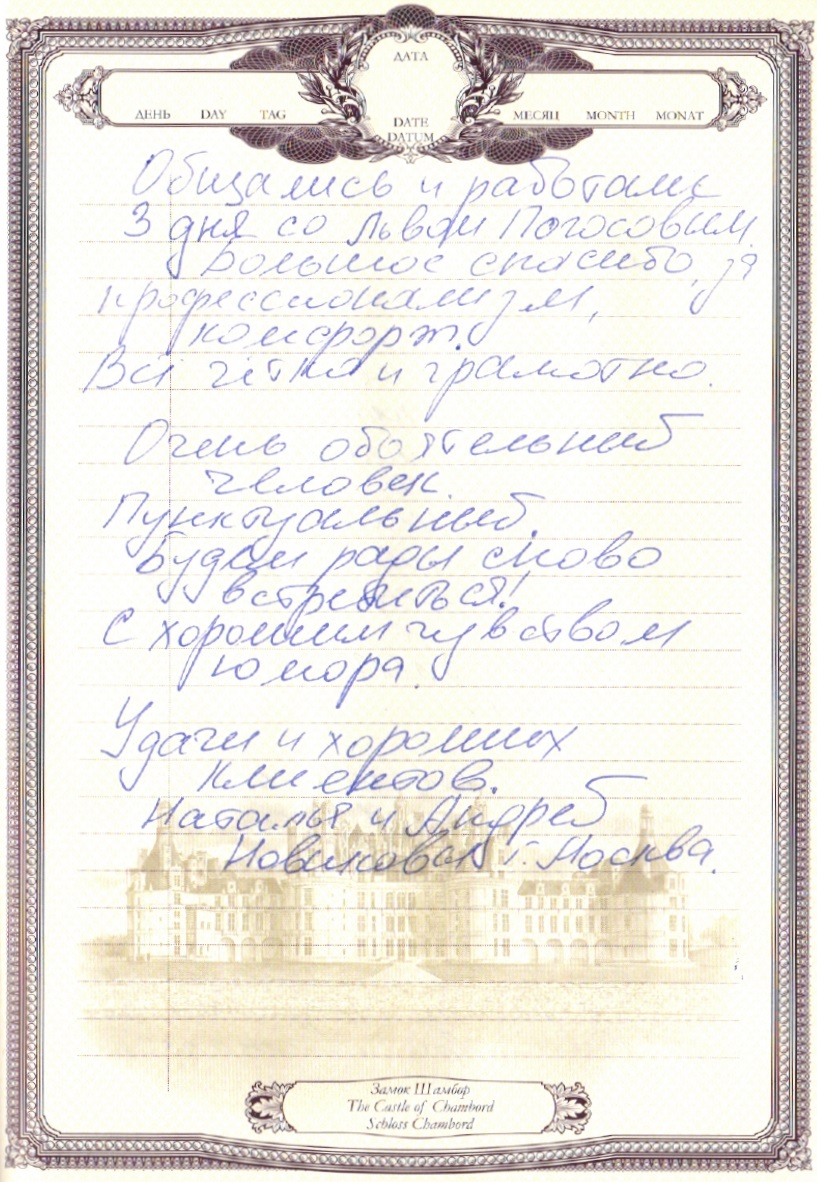 ДАТА
ДЕНЬ DAY TAG
МЕСЯЦ MONTH MONAT
DATE
DATUM
Общались и работали
3 дня со Львом Погосовым.
Большое спасибо за
профессионализм,
комфорт.
Всё чётко и грамотно.
Очень обоятельный
человек.
Пунктуальный.
Будем рады снова
встретиться!
С хорошим чувством
юмора.
Удачи и хороших
клиентов.
Наталья и Андрей
Новиковы г. Москва.
Замок Шамбор
The Castle of Chambord
Schloss Chambord